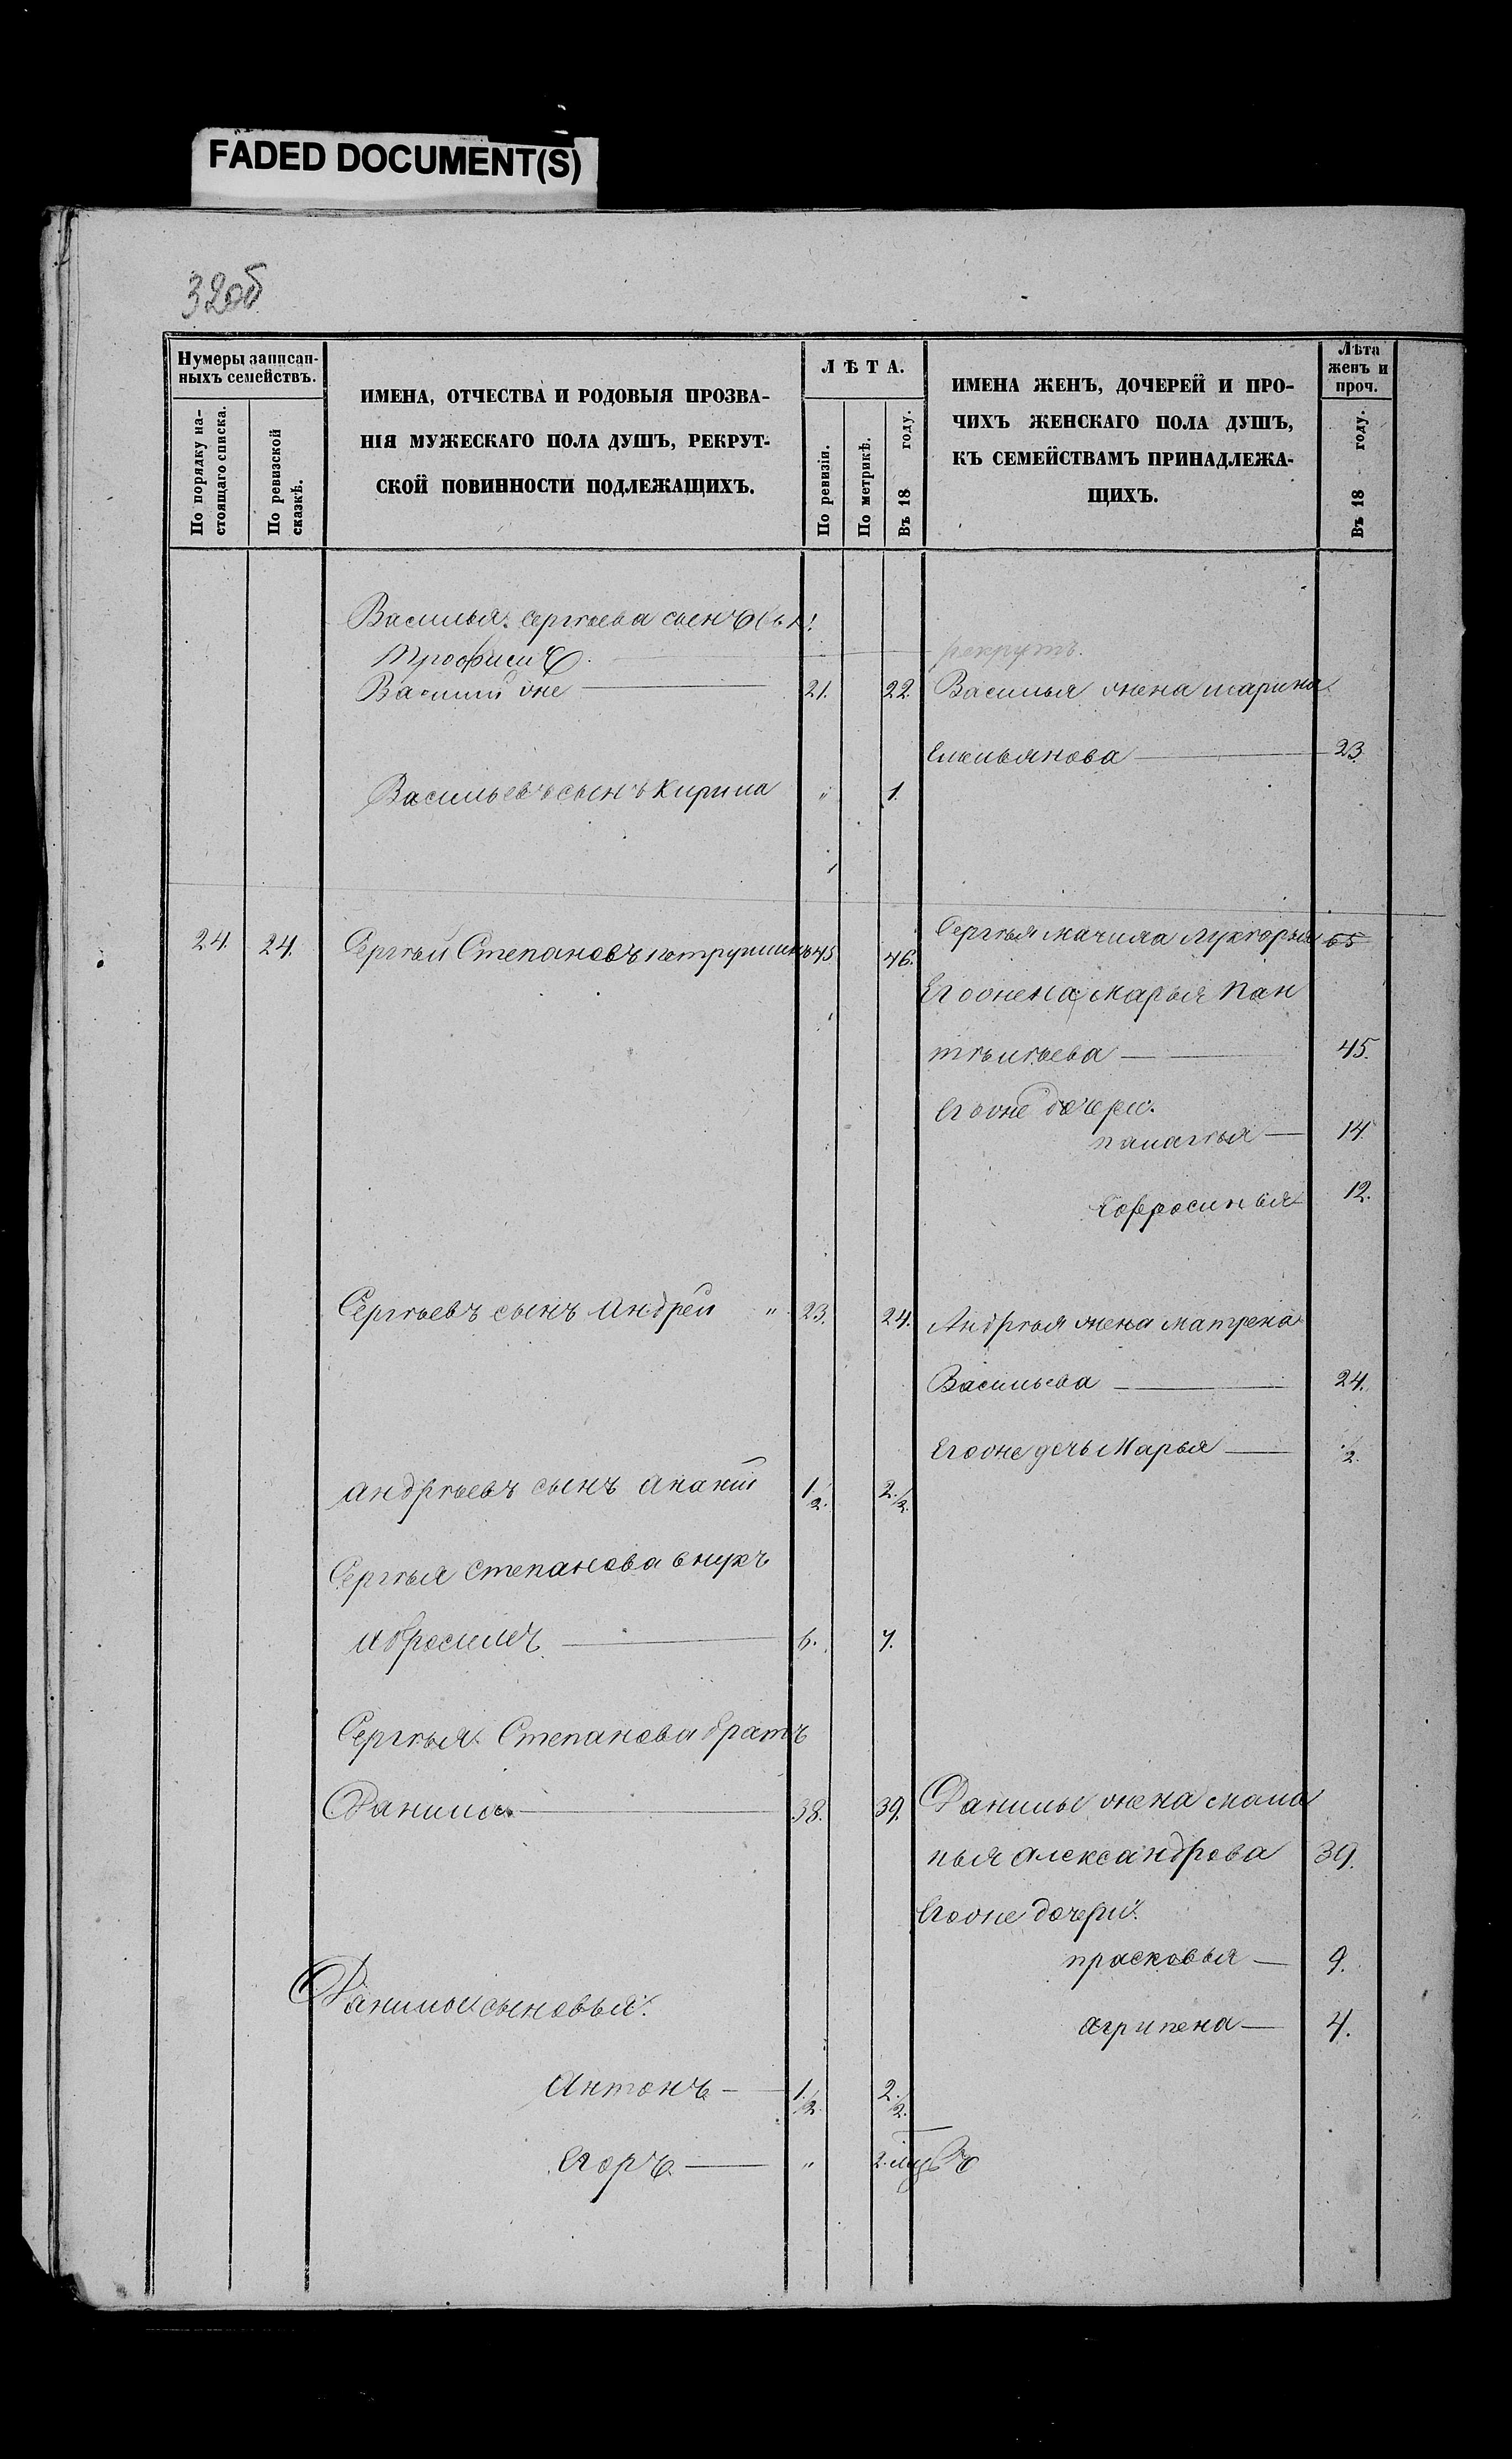 FADED DOCUMENT(S)
32об
Нумеры записан-
ныхъ семействъ.
По порядку на-
стоящаго списка.
По ревизской
сказкѣ.
ИМЕНА, ОТЧЕСТВА И РОДОВЫЯ ПРОЗВА-
НІЯ МУЖЕСКАГО ПОЛА ДУШЪ, РЕКРУТ-
СКОЙ ПОВИННОСТИ ПОДЛЕЖАЩИХЪ.
ЛѢТА.
По ревизіи.
По метрикѣ.
Въ 18 году.
ИМЕНА ЖЕНЪ, ДОЧЕРЕЙ И ПРО-
ЧИХЪ ЖЕНСКАГО ПОЛА ДУШЪ,
КЪ СЕМЕЙСТВАМЪ ПРИНАДЛЕЖА-
ЩИХЪ.
Лѣта
женъ и
проч.
Въ 18 году.
Василья Сергѣева
рекрутъ.
21. 22. Василья жена
Емельянова 23.
Васильевъ сынъ Кирила " 1.
24. 24. Сергѣй Степановъ 45. 46. Сергѣя 65
Его жена Марья Пан
тѣлѣева 45.
Егоже дочери.
палагѣя 14.
Ефросинья 12.
Сергѣевъ сынъ Андрей " 23. 24. Андрѣя жена матрена
Васильева 24.
Егоже дочь Марья 1/2.
андрѣевъ сынъ ананий 1 1/2. 2 1/2.
Сергѣя Степанова внукъ
Абросимъ 6. 7.
Сергѣя Степанова братъ
Данила 38. 39. Данилы жена мала
нья александрова 39.
Егоже дочери.
прасковья 9.
Данилы сыновья.
агрипена 4.
Антонъ 1 1/2. 2 1/2.
Егоръ " 2.